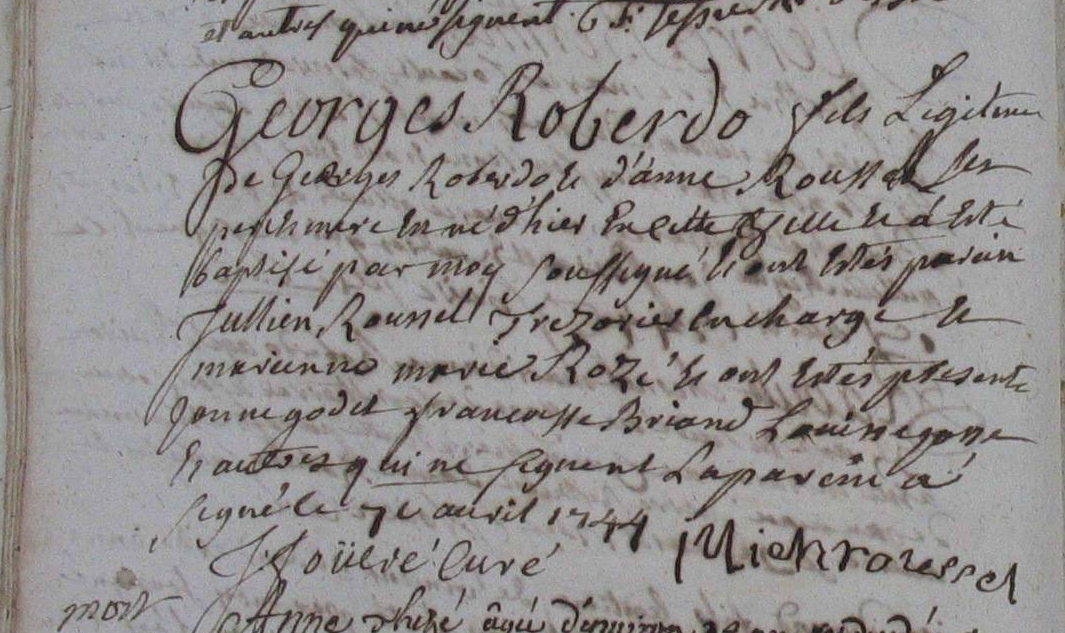 et autres qui ne signent
Georges Roberdo fils Legitime
de Georges Roberdo et d'anne Roussel ses
pere et mere est né d'hier en cette ville et á esté
baptisé par moy soussigné et ont estés parain
Jullien Roussel Trezorier en charge et
marienne marie Rozé et ont estés présents
Janne godet francoisse Briand
et autres qui ne signent Le parein a
signé le 7e avril 1744
curé roussel
mort Anne âgée d'environ